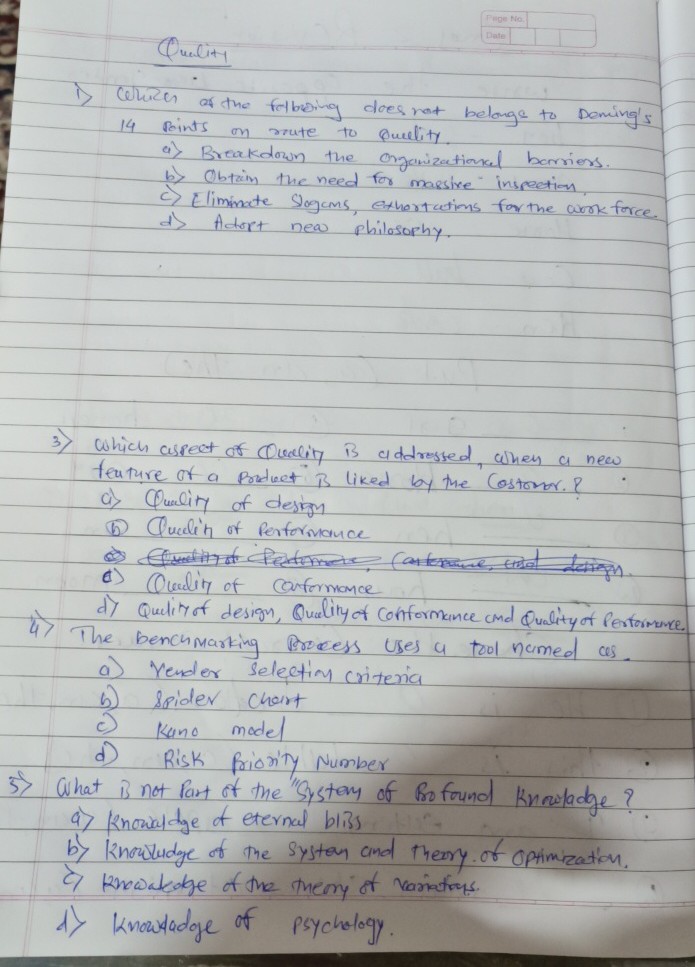 Page No.
Date
Quality
1) Which of the following does not belongs to Deming's
14 Points on route to Quality.
a) Breakdown the organizational barriers.
b) Obtain the need for massive inspection.
c) Eliminate Slogans, exhortations for the work force.
d) Adopt new philosophy.
3) Which aspect of Quality is addressed, when a new
feature of a Product is liked by the Costomer.?
a) Quality of design
b) Quality of Performance
c) Quality of conformance
d) Quality of design, Quality of Conformance and Quality of Performance.
4) The benchmarking Process uses a tool named as.
a) Vender selection criteria
b) Spider Chart
c) Kano model
d) Risk Priority Number
5) What is not Part of the "System of Profound Knowladge?
a) Knowaldge of eternal bliss
b) Knowludge of the System and Theory of Optimization.
c) Knowaledge of the theory of variations.
d) Knowladge of psychology.